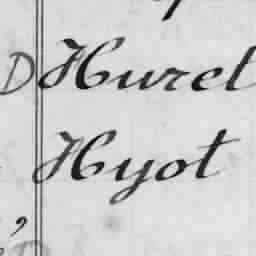 D Hurel
Hyot
,